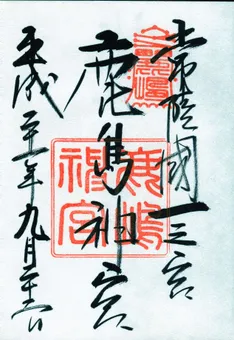 常陸國一之宮
鹿島神宮
平成二十一年九月二十一日
鹿嶋
神宮